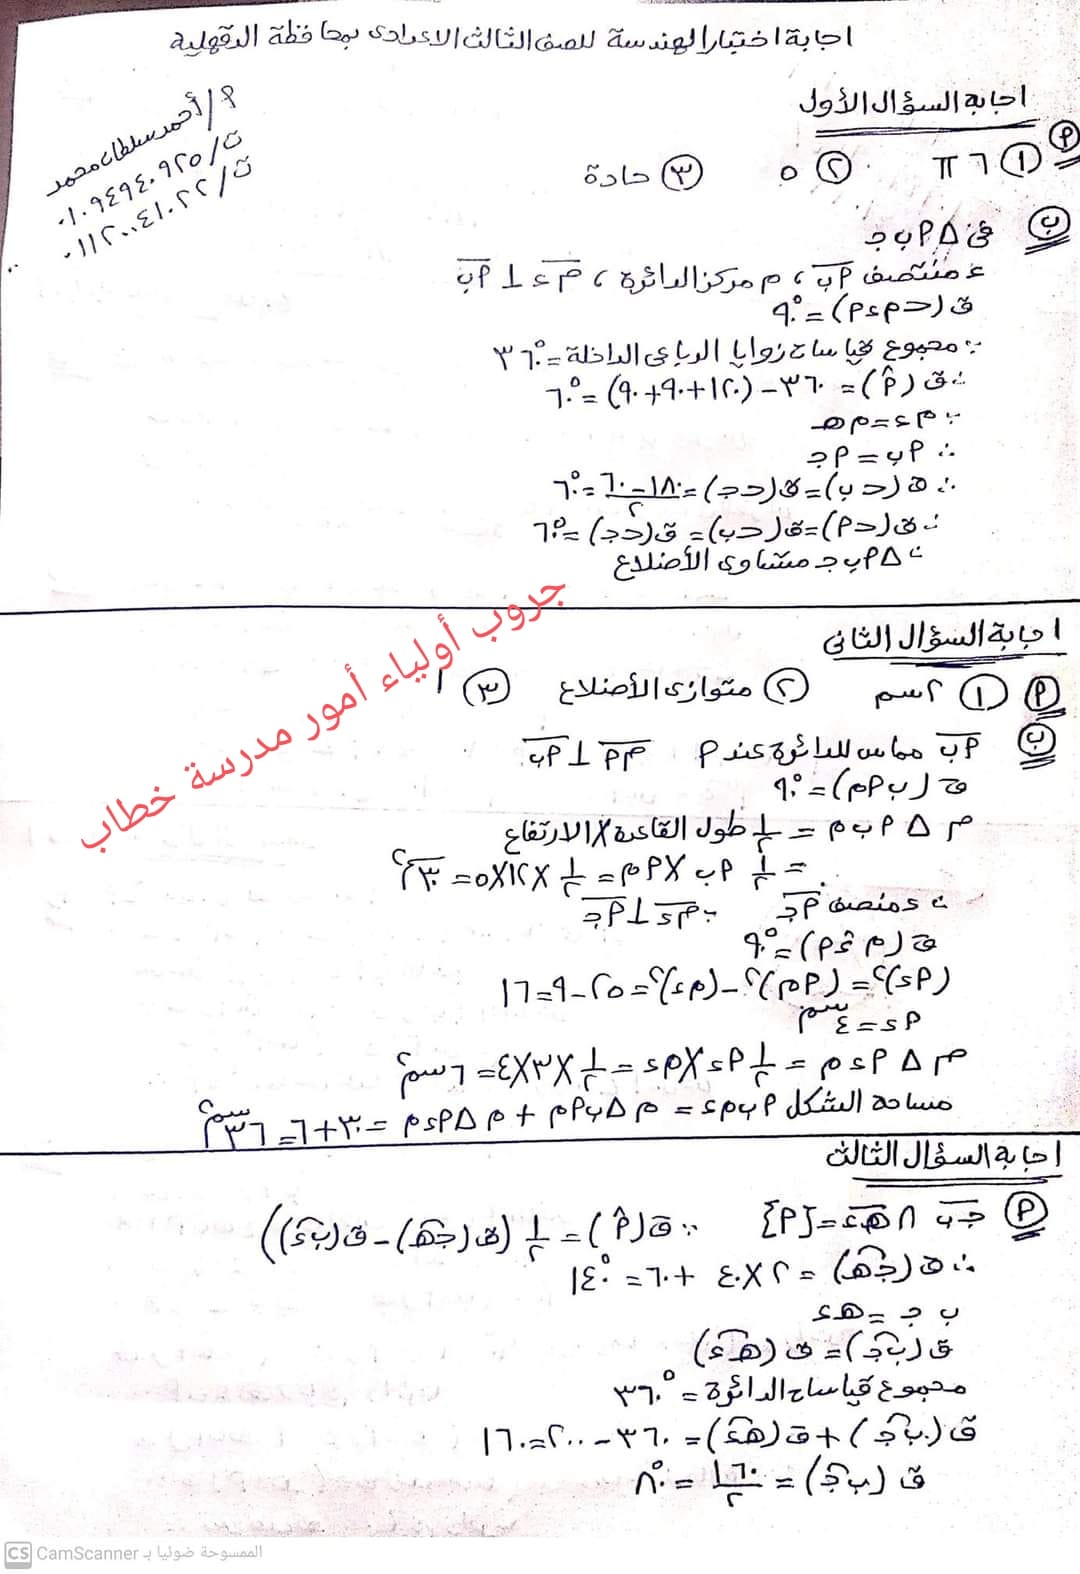 اجابة اختبار الهندسة للصف الثالث الاعدادى بمحافظة الدقهلية
اجابة السؤال الأول
أ/ أحمد سلطان محمد
ت/ ٠١٠٩٤٩٤٠٩٢٥
ت/ ٠١١٢٠٠٤١٠٢٢
P ① ٦ π ② ٥ ③ حادة
ب فى Δ P ب جـ
ء منتصف P ب ، م مركز الدائرة ، م ء ⊥ P ب
ق (> م ء P) = ٩٠°
∵ مجموع قياسات زوايا الرباعى الداخلة = ٣٦٠°
∴ ق (P) = ٣٦٠ − (١٢٠ + ٩٠ + ٩٠) = ٦٠°
∵ م ء = م هـ
∴ P ب = P جـ
∴ ق (> ب) = ق (> جـ) = (١٨٠ − ٦٠)/٢ = ٦٠°
∴ ق (> P) = ق (> ب) = ق (> جـ) = ٦٠°
∴ Δ P ب جـ متساوى الأضلاع
اجابة السؤال الثانى
P ① ٢ سم ② متوازى الأضلاع ③ ١
ب P ب مماس للدائرة عند P م P ⊥ P ب
ق (ب P م) = ٩٠°
م Δ P ب م = ١/٢ طول القاعدة × الارتفاع
= ١/٢ P ب × P م = ١/٢ × ١٢ × ٥ = ٣٠ سم٢
∵ ء منصف P جـ ∵ م ء ⊥ P جـ
ق (م ء P) = ٩٠°
(P ء)٢ = (P م)٢ − (م ء)٢ = ٢٥ − ٩ = ١٦
P ء = ٤ سم
م Δ P ء م = ١/٢ P ء × م ء = ١/٢ × ٣ × ٤ = ٦ سم٢
مساحة الشكل P ب م ء = م Δ ب P م + م Δ P ء م = ٣٠ + ٦ = ٣٦ سم٢
جروب أولياء أمور مدرسة خطاب
اجابة السؤال الثالث
P جـ ب ∩ هـ ء = {P} ∵ ق (P) = ١/٢ (ق (جـ هـ) − ق (ب ء))
∴ ق (جـ هـ) = ٢ × ٤٠ + ٦٠ = ١٤٠°
ب جـ = هـ ء
ق (ب جـ) = ق (هـ ء)
مجموع قياسات الدائرة = ٣٦٠°
ق (ب جـ) + ق (هـ ء) = ٣٦٠ − ٢٠٠ = ١٦٠
ق (ب جـ) = ١٦٠/٢ = ٨٠°
CS الممسوحة ضوئيا بـ CamScanner